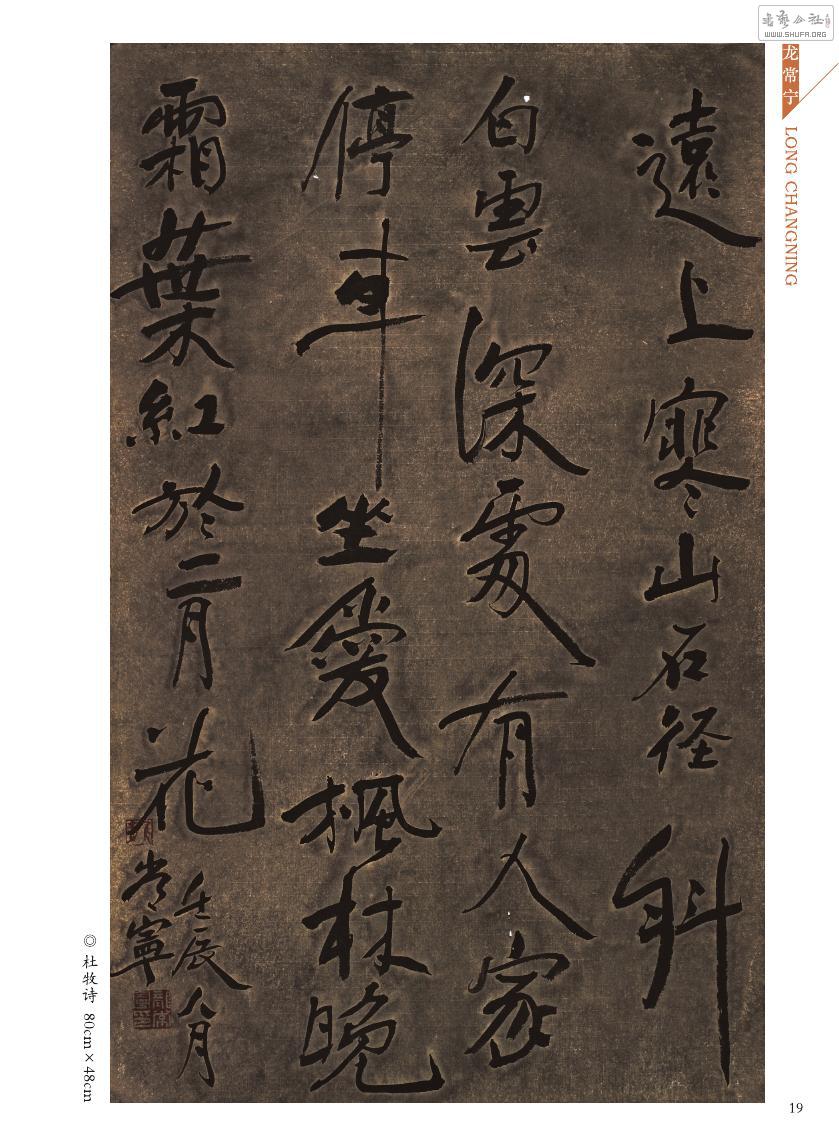 書藝公社
WWW.SHUFA.ORG
龙常宁
LONG CHANGNING
遠上寒山石径斜
白雲深處有人家
停車坐愛楓林晚
霜葉紅於二月花
壬辰八月
常寧
◎ 杜牧诗 80cm×48cm
19